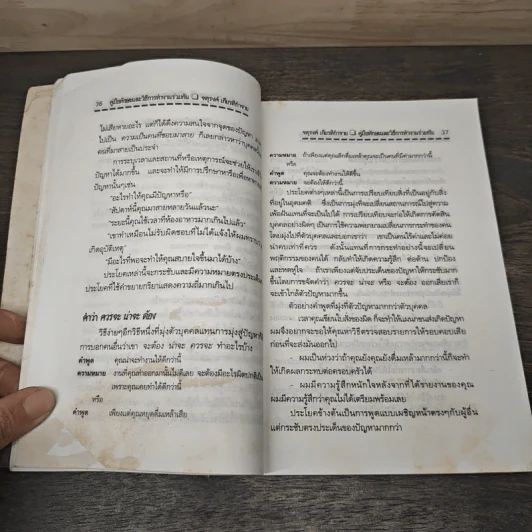 36 คู่มือทักษะและวิธีการทำงานร่วมกัน ❏ จตุรงค์ เกียรติกำจาย
ไม่เสียหายอะไร แต่ก็ได้ดึงความสนใจจากจุดของปัญหา
ไปเป็น ความเป็นคนที่ชอบมาสาย ก็เลยกล่าวหาว่าบุคคล
คนที่มาสายเป็นประจำ
การระบุเวลาและสถานที่หรือเหตุการณ์จะช่วยให้
ปัญหาได้มากขึ้น และจะทำให้มีการปรึกษาหารือเพื่อหาทาง
ปัญหานั้นๆเช่น
"อะไรทำให้คุณมีปัญหาหรือ"
"สัปดาห์นี้คุณมาสายหลายวันแล้วนะ"
"ระยะนี้คุณใช้เวลาที่ห้องอาหารมากเกินไปแล้ว"
"เขาทำเหมือนไม่รับผิดชอบที่ไม่ได้แจ้งให้ผมทราบ
เกิดอุบัติเหตุ"
"มีอะไรที่พอจะทำให้คุณสบายใจขึ้นมาได้บ้าง"
ประโยคเหล่านี้จะกระชับและมีความหมายตรงประเด็น
ประโยคที่ใช้คำขยายกริยาแสดงความถี่มากเกินไป
คำว่า ควรจะ น่าจะ ต้อง
วิธีง่ายๆอีกวิธีหนึ่งที่มุ่งตัวบุคคลแทนการมุ่งสู่ปัญหา
การบอกคนอื่นว่าเขา จะต้อง น่าจะ ควรจะ ทำอะไรบ้าง
คำพูด คุณน่าจะทำงานให้ดีกว่านี้
ความหมาย งานที่คุณทำออกมานั้นไม่ดีเลย จะต้องมีอะไรผิดปกติ
เพราะคุณเคยทำได้ดีกว่านี้
หรือ
คำพูด เพียงแต่คุณหยุดดื่มเหล้าเสีย
จตุรงค์ เกียรติกำจาย ❏ คู่มือทักษะและวิธีการทำงานร่วมกัน 37
ความหมาย ถ้าเพียงแต่คุณเลิกดื่มเหล้าคุณจะเป็นคนดีมีค่ามากกว่านี้
หรือ
คำพูด คุณจะต้องทำงานให้ดีขึ้น
ความหมาย จะต้องให้ดีกว่านี้
ประโยคต่างๆเหล่านี้เป็นการเปรียบเทียบสิ่งที่เป็นอยู่กับสิ่ง
ที่อยู่ในอุดมคติ ซึ่งเป็นการมุ่งที่จะเปลี่ยนสถานการณ์ไปสู่ความ
เพ้อฝันแทนที่จะเป็นไปได้ การเปรียบเทียบจะก่อให้เกิดการตัดสิน
บุคคลอย่างผิดๆ เป็นการใช้ความพยายามเปลี่ยนการกระทำของคน
โดยมุ่งไปที่ตัวบุคคลและบอกเขาว่า เขาเป็นคนใช้ค่าและไม่ค่อย
น่าคบเท่าที่ควร ดังนั้นแทนที่การกระทำอย่างนี้จะเปลี่ยน
พฤติกรรมของคนได้ กลับทำให้เกิดความรู้สึก ต่อต้าน ปกป้อง
และหดหู่ใจ ถ้าเราเพียงแต่จับประเด็นของปัญหาให้กระชับมาก
ขึ้นโดยการขจัดคำว่า ควรจะ น่าจะ หรือ จะต้อง ออกเสียเราก็
จะเข้าใกล้ตัวปัญหามากขึ้น
ตัวอย่างคำพูดที่มุ่งที่ตัวปัญหามากกว่าตัวบุคคล
- เวลาคุณเขียนใบสั่งของผิด ก็จะทำให้แผนกขนส่งเกิดปัญหา
ผมจึงอยากจะขอให้คุณหาวิธีตรวจสอบรายการให้รอบคอบเสีย
ก่อนที่จะส่งมันออกไป
- ผมเป็นห่วงว่าถ้าคุณยังคุณยังดื่มเหล้ามากกว่านี้ก็จะทำ
ให้เกิดผลกระทบต่อครอบครัวได้
- ผมมีความรู้สึกหนักใจหลังจากที่ได้รายงานของคุณ
ผมมีความรู้สึกว่าคุณไม่ได้เตรียมพร้อมเลย
ประโยคข้างต้นเป็นการพูดแบบเผชิญหน้าตรงๆกับผู้อื่น
แต่กระชับตรงประเด็นของปัญหามากกว่า